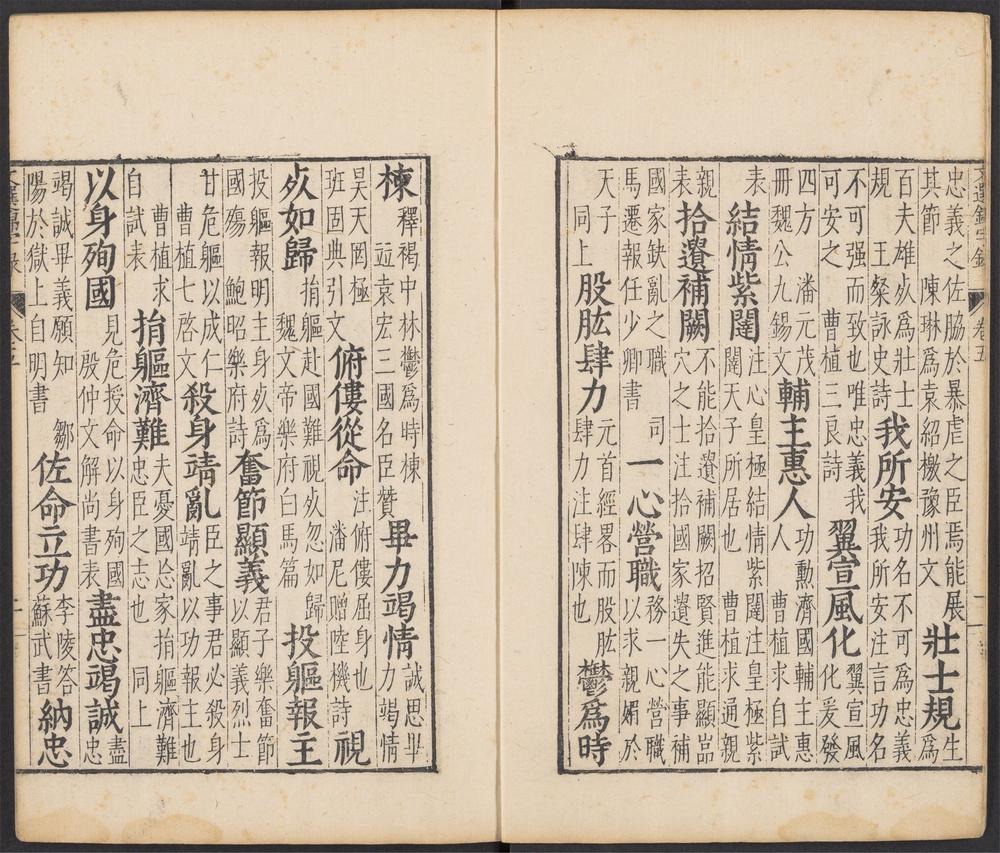 文選錦字錄 卷五
忠義之佐脇於暴虐之臣焉能展
其節 陳琳爲袁紹檄豫州文
壯士規
生
爲
百夫雄死爲壯士
規 王粲詠史詩
我所安
功名不可爲忠義
我所安注言功名
不可强而致也唯忠義我
可安之 曹植三良詩
翼宣風化
翼宣風
化爰發
四方 潘元茂
冊魏公九錫文
輔主惠人
功勳濟國輔主惠
人 曹植求自試
表
結情紫闥
注心皇極結情紫闥注皇極紫
闥天子所居也 曹植求通親
親
表
拾遺補闕
不能拾遺補闕招賢進能顯嵓
穴之士注拾國家遺失之事補
國家缺亂之職 司
馬遷報任少卿書
一心營職
務一心營職
以求親媚於
天子
同上
股肱肆力
元首經畧而股肱
肆力注肆陳也
鬱爲時
棟
釋褐中林鬱爲時棟
並袁宏三國名臣贊
畢力竭情
誠思畢
力竭情
昊天罔極
班固典引文
俯僂從命
注俯僂屈身也
潘尼贈陸機詩
視
死如歸
捐軀赴國難視死忽如歸
魏文帝樂府白馬篇
投軀報主
投軀報明主身死爲
國殤 鮑昭樂府詩
奮節顯義
君子樂奮節
以顯義烈士
甘危軀以成仁
曹植七啓文
殺身靖亂
臣之事君必殺身
靖亂以功報主也
曹植求
自試表
捐軀濟難
夫憂國忘家捐軀濟難
忠臣之志也 同上
以身殉國
見危授命以身殉國
殷仲文解尚書表
盡忠竭誠
盡
忠
竭誠畢義願知 鄒
陽於獄上自明書
佐命立功
李陵答
蘇武書
納忠